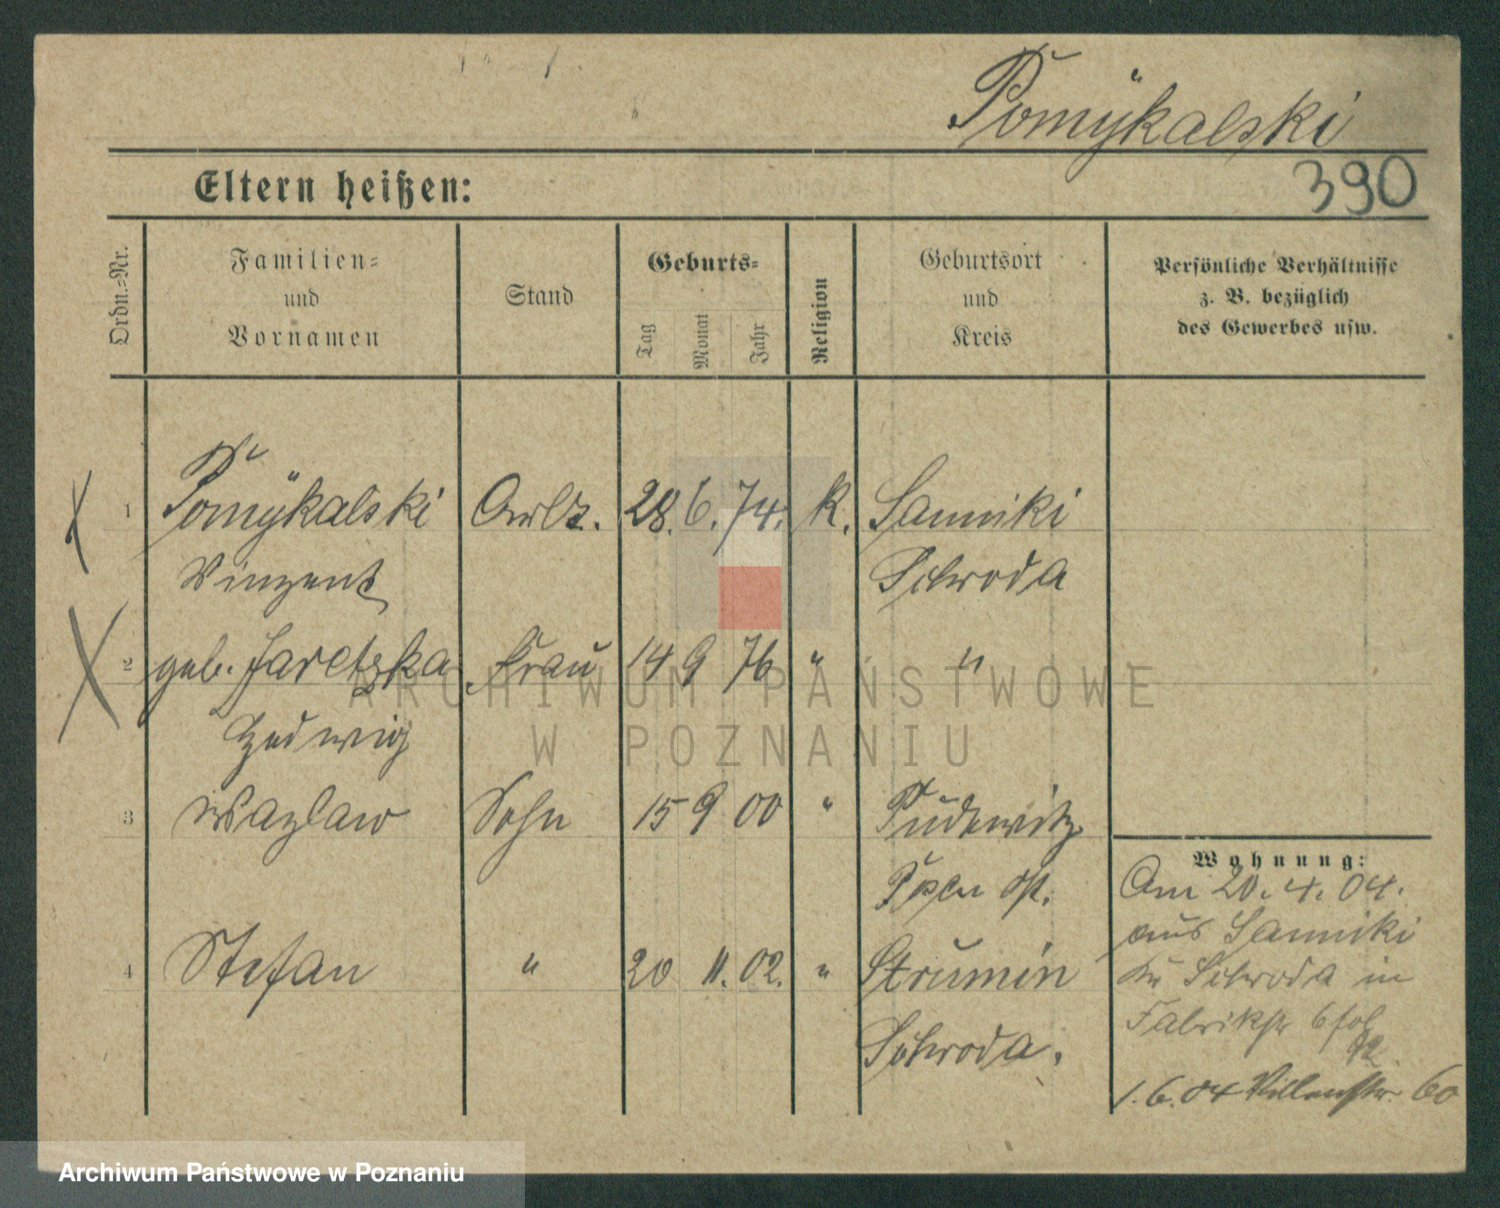 Pomÿkalski
Eltern heißen:
390
Ordn.-Nr.
Familien-
und
Vornamen
Stand
Geburts-
Tag
Monat
Jahr
Religion
Geburtsort
und
Kreis
Persönliche Verhältnisse
z. B. bezüglich
des Gewerbes usw.
1 Pomÿkalski Arbz. 28. 6. 74. K. Sanniki
Vinzent Schroda
2 geb. Jaretzka Frau 14 9 76 " "
Hedwig
3 Wazlaw Sohn 15 9 00 " Pudewitz
Posen Ost.
4 Stefan " 20 11. 02. " Strumin
Schroda.
Wohnung:
Am 20. 4. 04.
aus Sanniki
Kr Schroda in
Fabrikstr 6
1. 6. 04 60
ARCHIWUM PAŃSTWOWE
W POZNANIU
Archiwum Państwowe w Poznaniu